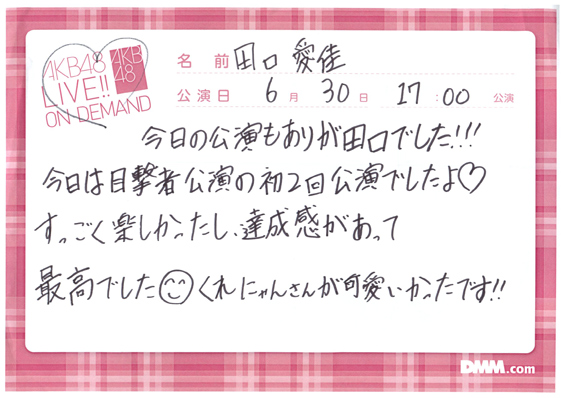 AKB48
LIVE!!
ON DEMAND
AKB
48
名前 田口 愛佳
公演日 6月 30日 17:00 公演
今日の公演もありが田口でした!!!
今日は目撃者公演の初2回公演でしたよ♡
すっごく楽しかったし、達成感があって
最高でした☺くれにゃんさんが可愛いかったです!!
DMM.com